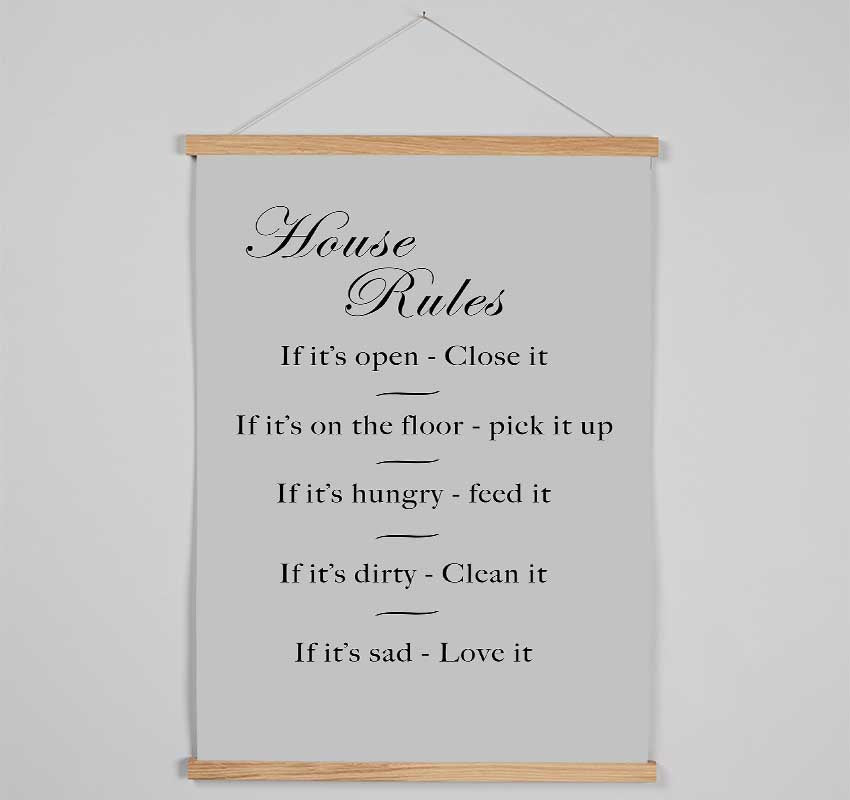 House
Rules
If it’s open - Close it
If it’s on the floor - pick it up
If it’s hungry - feed it
If it’s dirty - Clean it
If it’s sad - Love it